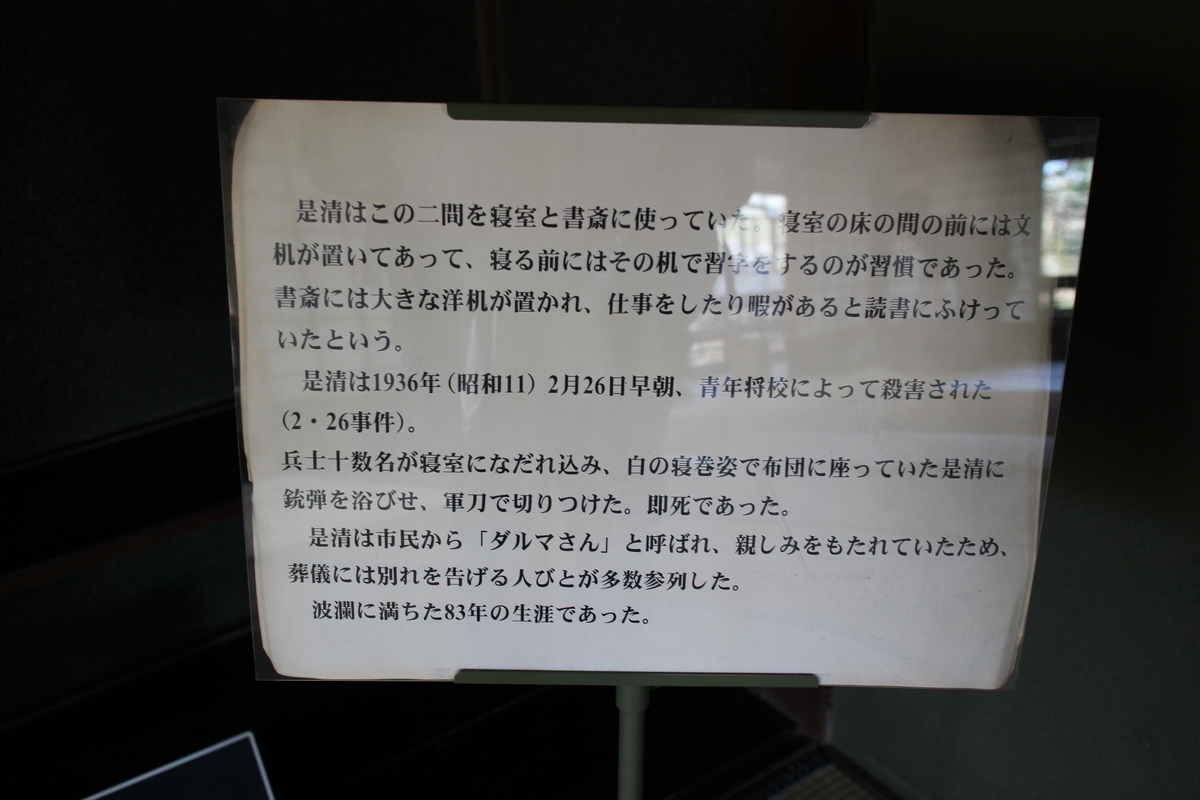 是清はこの二間を寝室と書斎に使っていた。寝室の床の間の前には文
机が置いてあって、寝る前にはその机で習字をするのが習慣であった。
書斎には大きな洋机が置かれ、仕事をしたり暇があると読書にふけって
いたという。
是清は1936年(昭和11)2月26日早朝、青年将校によって殺害された
(2・26事件)。
兵士十数名が寝室になだれ込み、白の寝巻姿で布団に座っていた是清に
銃弾を浴びせ、軍刀で切りつけた。即死であった。
是清は市民から「ダルマさん」と呼ばれ、親しみをもたれていたため、
葬儀には別れを告げる人びとが多数参列した。
波瀾に満ちた83年の生涯であった。